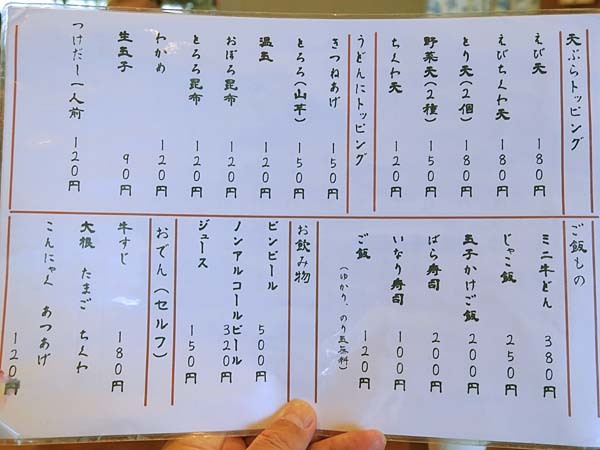 天ぷらトッピング
えび天 180円
えびちくわ天 180円
とり天(2個) 180円
野菜天(2種) 150円
ちくわ天 120円
うどんにトッピング
きつねあげ 150円
とろろ(山芋) 150円
温玉 120円
おぼろ昆布 120円
とろろ昆布 120円
わかめ 120円
生玉子 90円
つけだし一人前 120円
ご飯もの
ミニ牛どん 380円
じゃこ飯 250円
玉子かけご飯 200円
ばら寿司 200円
いなり寿司 100円
ご飯 120円
(ゆかり、のり玉無料)
お飲み物
ビンビール 500円
ノンアルコールビール 320円
ジュース 150円
おでん(セルフ)
牛すじ 180円
大根 たまご ちくわ
こんにゃく あつあげ 120円